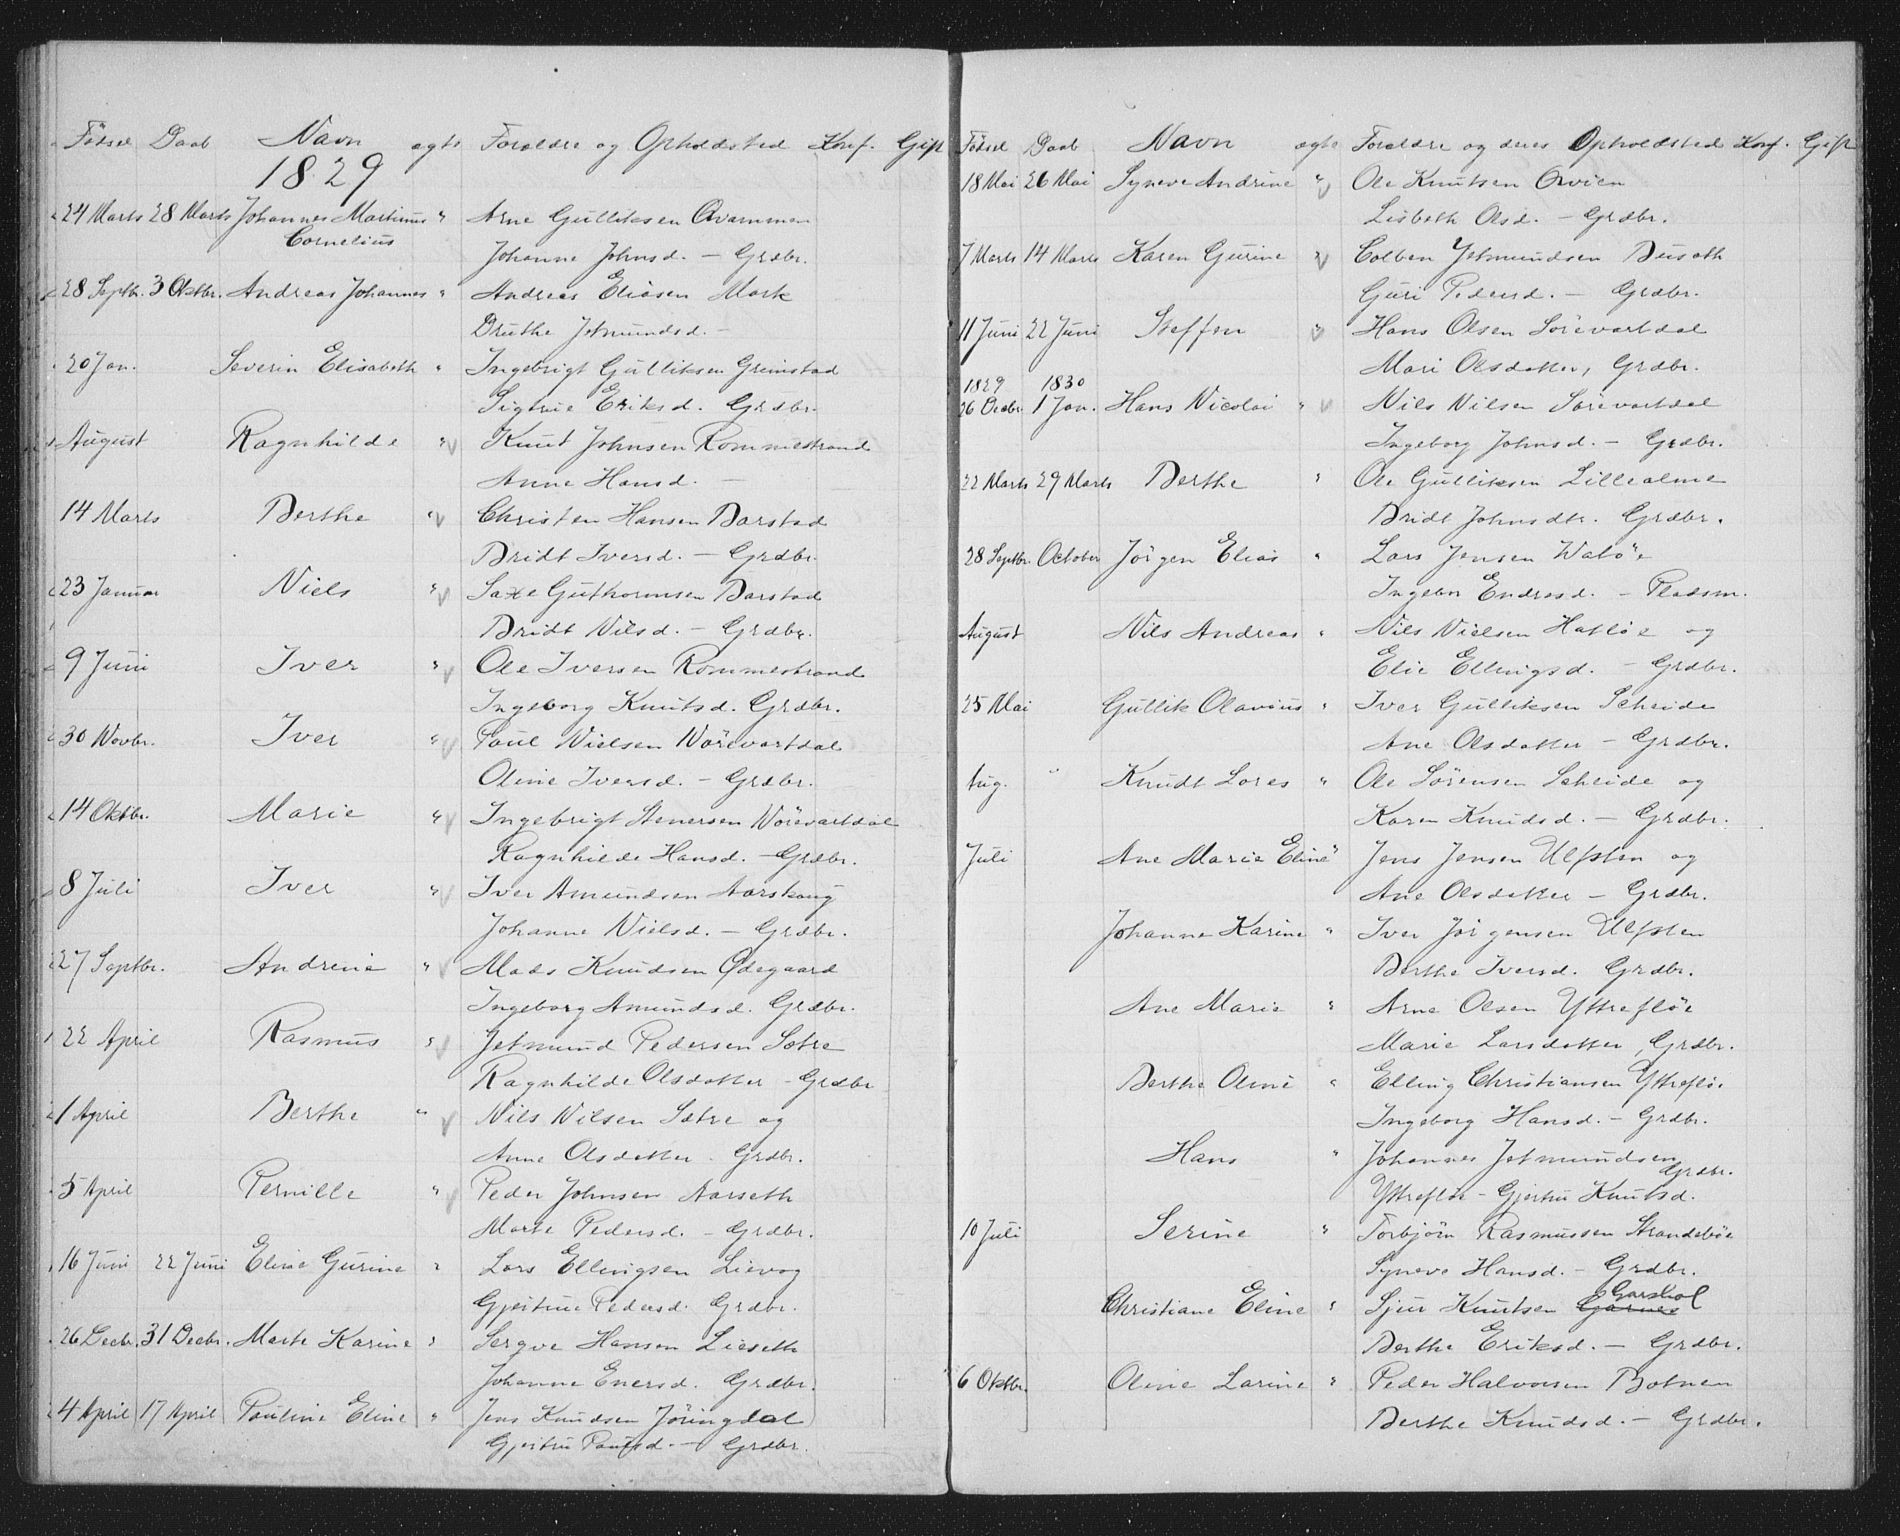 Fødsel Daab Navn ægte Forældre og Opholdssted Konf. Gift
1829
24 Marts 28 Marts Johannes Martinus " Arne Gulliksen Qvammen
Cornelius Johanne Johnsd. – Grdbr.
28 Septbr. 3 Oktbr. Andreas Johannes " Andreas Eliasen Mork
Bruthe Jetmundsd. –
20 Jan. Severin Elisabeth " Ingebrigt Gulliksen Grimstad
Sigrie Eriksd. Grdbr.
August Ragnhilde " Knut Johnsen Rommestrand
Anne Hansd. –
14 Marts Berthe " Christen Hansen Barstad
Bridt Iversd. – Grdbr.
23 Januar Niels " Saxe Guthormsen Barstad
Bridt Nilsd. – Grdbr.
9 Juni Iver " Ole Iversen Rommestrand
Ingeborg Knutsd. Grdbr.
30 Novbr. Iver " Poul Nielsen Nörevartdal
Oline Iversd. – Grdbr.
14 Oktbr. Marie " Ingebrigt Stenersen Nörevartdal
Ragnhilde Hansd. – Grdbr.
8 Juli Iver " Iver Amundsen Aarskoug
Johanne Nielsd. – Grdbr.
27 Septbr. Andrine " Mads Knudsen Ødegaard
Ingeborg Amundsd. Grdbr.
22 April Rasmus " Jetmund Pedersen Sætre
Ragnhilde Olsdatter – Grdbr
1 April Berthe " Nils Nilsen Sætre og
Anne Olsdatter – Grdbr.
5 April Pernille " Peder Johnsen Aarseth
Marte Pedersd. – Grdbr.
16 Juni 22 Juni Eline Gurine " Lars Ellingsen Lievog
Gjertrue Pedersd. Grdbr.
26 Decbr. 31 Decbr. Marte Karine " Sergve Hansen Lieseth
Johanne Enersd. Grdbr.
4 April 17 April Pauline Eline " Jens Knudsen Jöringdal
Gjertru Paulsd. – Grdbr.
Fødsel Daab Navn ægte Forældre og deres Opholdssted Konf. Gift
18 Mai 26 Mai Syneve Andrine " Ole Knutsen Orvien
Lisbeth Olsd. – Grdbr.
7 Marts 14 Marts Karen Gurine " Colben Jetmundsen Buseth
Guri Pedersd. – Grdbr.
11 Juni 22 Juni Steffen " Hans Olsen Sörevartdal
Mari Olsdatter, Grdbr.
1829 1830
26 Decbr. 1 Jan. Hans Nicolai " Nils Nilsen Sörevartdal
Ingeborg Johnsd. – Grdbr.
22 Marts 29 Marts Berthe " Ole Gulliksen Lillealme
Bridt Johnsdtr. Grdbr.
28 Septbr. October Jörgen Elias " Lars Jensen Watöe
Ingebor Endresd. – Pladsm.
August Nils Andreas " Nils Nielsen Hatløe og
Elie Ellingsd. – Grdbr.
25 Mai Gullik Olavius " Iver Gulliksen Scheide
Ane Olsdatter – Grdbr.
Aug. " Knudt Lores " Ole Sörensen Scheide og
Karen Knudsd. – Grdbr.
Juli Ane Marie Eline " Jens Jensen Ulfsten og
Ane Olsdatter – Grdbr.
Johanne Karine " Iver Jörgensen Ulfsten
Berthe Iversd. Grdbr.
Ane Marie " Arne Olsen Yttreflöe
Marie Larsdatter, Grdbr.
Berthe Oline " Elling Christiansen Yttreflöe
Ingeborg Hansd. – Grdbr.
Hans " Johannes Jetmundsen
Grdbr.
Yttreflöe – Gjertru Knutsd.
10 Juli Serine " Torbjörn Rasmussen Strandebøe
Syneve Hansd. – Grdbr.
Garshol
Christiane Eline " Sjur Knutsen Garnes
Berthe Eriksd. – Grdbr.
6 Oktbr. Oline Larine " Peder Halvorsen Botnen
Berthe Knudsd. – Grdbr.